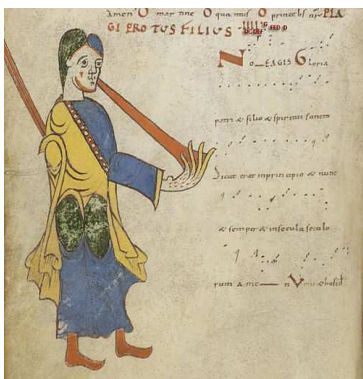 amen O mar tine O qua mus O princeps nr PLA
GI PROTUS FILIUS
No—EAGIS Gloria
patri & filio & spiritui sancto
Sicut erat in principio & nunc
& semper & in secula seculo
rum a me — n V